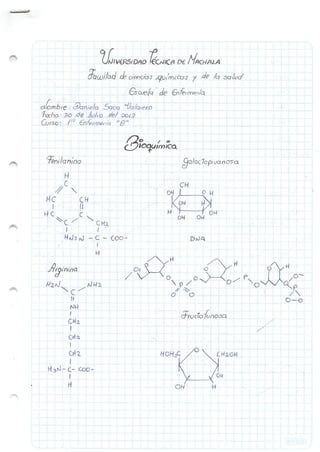 UNIVERSIDAD TÉCNICA DE MACHALA
Facultad de ciencias químicas y de la salud
Escuela de Enfermería
Nombre: Daniela
Fecha 30 de Julio del 2012
Curso: 1º Enfermería "B"
Bioquímica
Fenilanina
Galactopiranosa
H
C
HC CH
HC C
C CH2
H3N - C - COO-
H
CH
OH O H
OH H
H OH
OH OH
DNA
Arginina
H2N NH2
C
NH
CH2
CH2
CH2
H3N - C - COO-
H
H H H
O O P O O P O
O O
Fructofuranosa
HOH2C O CH2OH
OH
OH H